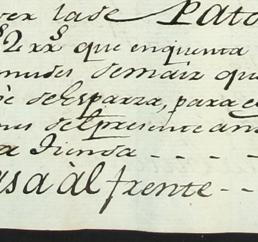 ver la de Pato
que en quenta
mudes de maiz que
de Esparza, para e
nes del presente an
a Tienda - - - -
asa al frente - -